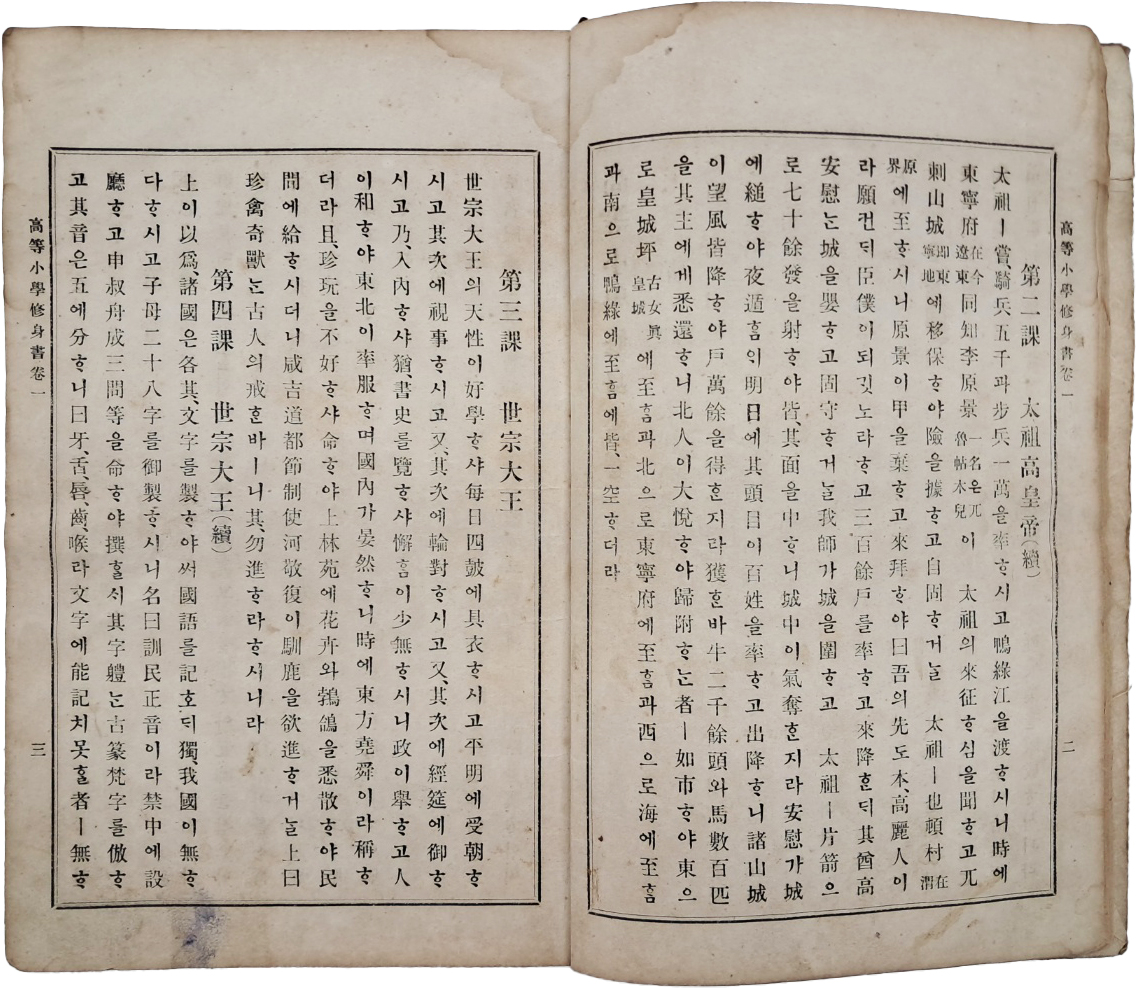 高等小學修身書卷一
二
第二課 太祖高皇帝(續)
太祖ㅣ嘗騎兵五千과步兵一萬을率ᄒᆞ시고鴨綠江을渡ᄒᆞ시니時에
東寧府在今遼東同知李原景一名은兀魯帖木兒이 太祖의來征ᄒᆞ심을聞ᄒᆞ고兀
刺山城卽東寧地에移保ᄒᆞ야險을據ᄒᆞ고自固ᄒᆞ거ᄂᆞᆯ 太祖ㅣ也頓村在渭
原界에至ᄒᆞ시니原景이甲을棄ᄒᆞ고來拜ᄒᆞ야曰吾의先도本、高麗人이
라願컨ᄃᆡ臣僕이되깃노라ᄒᆞ고三百餘戶를率ᄒᆞ고來降ᄒᆞᆫᄃᆡ其酋高
安慰ᄂᆞᆫ城을嬰ᄒᆞ고固守ᄒᆞ거ᄂᆞᆯ我師가城을圍ᄒᆞ고 太祖ㅣ片箭으
로七十餘發을射ᄒᆞ야皆、其面을中ᄒᆞ니城中이氣奪ᄒᆞᆫ지라安慰가城
에縋ᄒᆞ야夜遁ᄒᆞᆷᄋᆡ明日에其、頭目이百姓을率ᄒᆞ고出降ᄒᆞ니諸山城
이望風皆降ᄒᆞ야戶萬餘을得ᄒᆞᆫ지라獲ᄒᆞᆫ바牛二千餘頭와馬數百匹
을其主에게悉還ᄒᆞ니北人이大悅ᄒᆞ야歸附ᄒᆞᄂᆞᆫ者ㅣ如市ᄒᆞ야東으
로皇城坪古女眞皇城에至ᄒᆞᆷ과北으로東寧府에至ᄒᆞᆷ과西으로海에至ᄒᆞᆷ
과南으로鴨綠에至ᄒᆞᆷ에皆、一空ᄒᆞ더라
第三課 世宗大王
世宗大王의天性이好學ᄒᆞ샤每日四鼓에具衣ᄒᆞ시고平明에受朝ᄒᆞ
시고其次에視事ᄒᆞ시고又、其次에輪對ᄒᆞ시고又、其次에經筵에御ᄒᆞ
시고乃、入內ᄒᆞ샤猶、書史를覽ᄒᆞ샤懈ᄒᆞᆷ이少無ᄒᆞ시니政이擧ᄒᆞ고人
이和ᄒᆞ야東北이率服ᄒᆞ며國內가晏然ᄒᆞ니時에東方堯舜이라稱ᄒᆞ
더라且、珍玩을不好ᄒᆞ샤命ᄒᆞ야上林苑에花卉와鵓鴿을悉散ᄒᆞ야民
間에給ᄒᆞ시더니咸吉道都節制使河敬復이馴鹿을欲進ᄒᆞ거ᄂᆞᆯ上曰
珍禽奇獸ᄂᆞᆫ古人의戒ᄒᆞᆫ바ㅣ니其、勿進ᄒᆞ라ᄒᆞ시니라
第四課 世宗大王(續)
上이以爲、諸國은各其、文字를製ᄒᆞ야써國語를記호ᄃᆡ獨、我國이無ᄒᆞ
다ᄒᆞ시고子母二十八字를御製ᄒᆞ시니名曰訓民正音이라禁中에設
廳ᄒᆞ고申叔舟成三問等을命ᄒᆞ야撰ᄒᆞᆯᄉᆡ其字軆ᄂᆞᆫ古篆梵字를倣ᄒᆞ
고其音은五에分ᄒᆞ니曰牙、舌、唇、齒、喉라文字에能記치못ᄒᆞᆯ者ㅣ無ᄒᆞ
高等小學修身書卷一
三